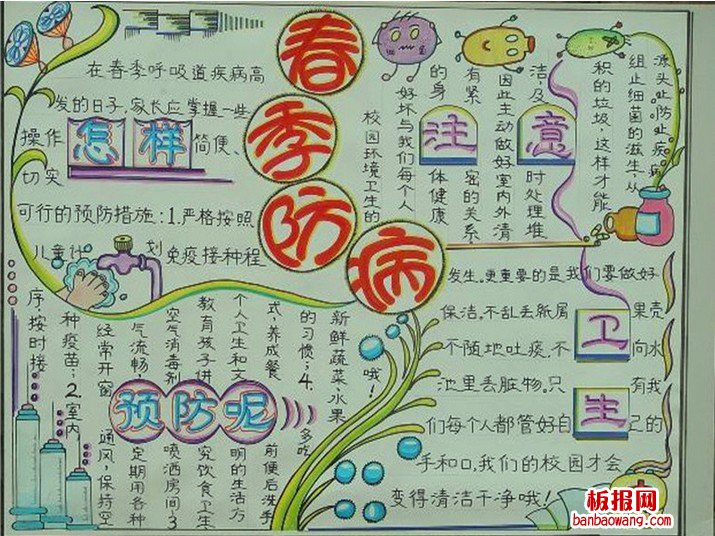 春季防病
在春季呼吸道疾病高
发的日子,家长应掌握一些
操作怎样简便、
切实
可行的预防措施:1.严格按照
儿童计划免疫接种程
序按时接
种疫苗;2.室内
经常开窗
通风,保持空
气流畅
定期用各种
空气消毒剂
喷洒房间3
教育孩子供
究饮食卫生
个人卫生和文
明的生活方
式,养成餐
前便后洗手
的习惯;4.
多吃
新鲜蔬菜、水果
哦!
预防呢
注意
校园环境卫生的
好坏与我们每个人
的身
体健康
有紧
密的关系
因此主动做好室内外清
洁,及
时处理堆
积的垃圾,这样才能
组止细菌的滋生,从
源头止防止疾病
发生,更重要的是我们要做好
保洁,不乱丢纸屑果壳
不随地吐痰,不向水
池里丢脏物。只有我
们每个人都管好自己的
手和口,我们的校园才会
变得清洁干净哦!
卫生
板报网
banbaowang.com